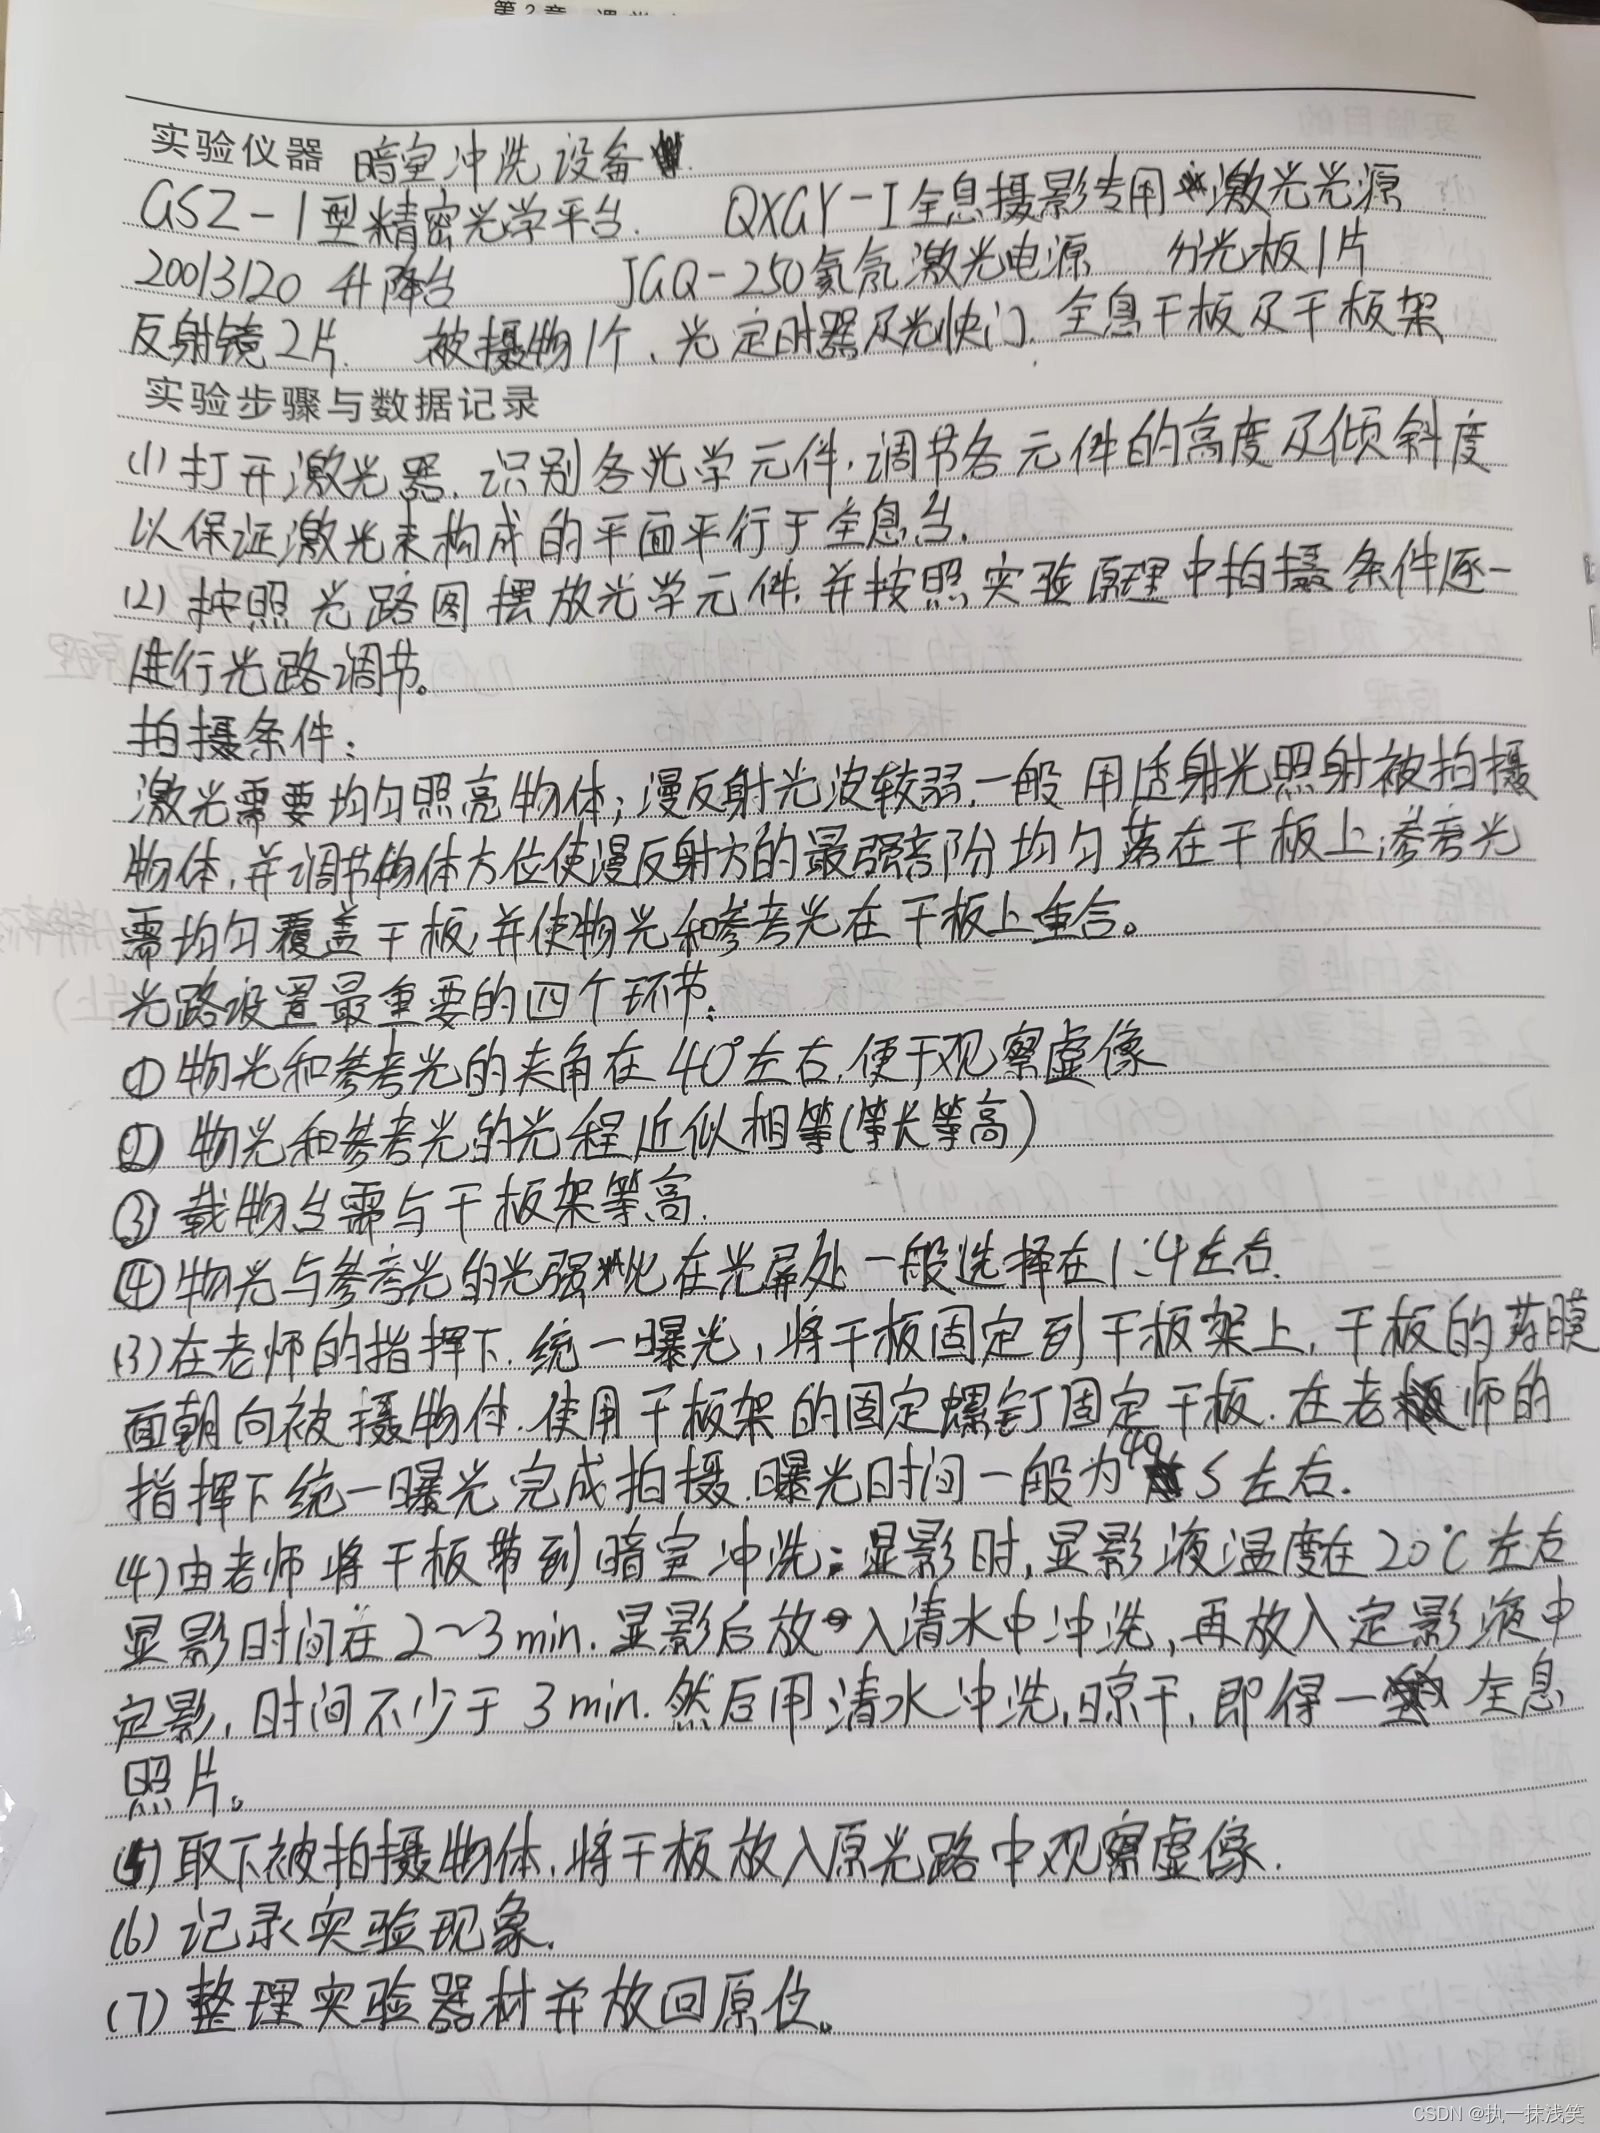 实验仪器 暗室冲洗设备
GSZ-1型精密光学平台. QXGY-I全息摄影专用激光光源
20013120 升降台 JGQ-250氦氖激光电源 分光板1片
反射镜2片. 被摄物1个、光定时器及光快门. 全息干板及干板架
实验步骤与数据记录
(1)打开激光器.识别各光学元件,调节各元件的高度及倾斜度
以保证激光束构成的平面平行于全息台.
(2)按照光路图摆放光学元件.并按照实验原理中拍摄条件逐一
进行光路调节。
拍摄条件:
激光需要均匀照亮物体;漫反射光波较弱.一般用透射光照射被拍摄
物体,并调节物体方位使漫反射方的最强部阶均匀落在干板上;参考光
需均匀覆盖干板,并使物光和参考光在干板上重合。
光路设置最重要的四个环节:
①物光和参考光的夹角在40°左右.便于观察虚像
② 物光和参考光的光程近似相等(等长等高)
③ 载物台需与干板架等高.
④物光与参考光的光强比在光屏处一般选择在1:4左右.
(3)在老师的指挥下.统一曝光,将干板固定到干板架上,干板的药膜
面朝向被摄物体.使用干板架的固定螺钉固定干板.在老师的
指挥下统一曝光完成拍摄.曝光时间一般为40s左右.
(4)由老师将干板带到暗室冲洗:显影时,显影液温度在20℃左右
显影时间在2~3min.显影后放入清水中冲洗,再放入定影液中
定影,时间不少于3min.然后用清水冲洗,晾干,即得一全息
照片。
(5)取下被拍摄物体,将干板放入原光路中观察虚像.
(6)记录实验现象.
(7)整理实验器材并放回原位。
CSDN @执一抹浅笑